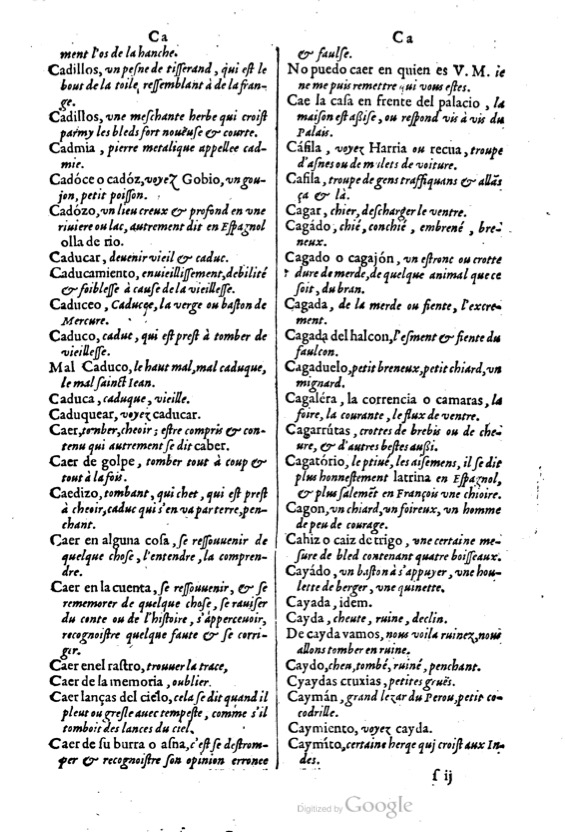 Ca
ment l'os de la hanche.
Cadillos, vn peſne de tiſſerand, qui eſt le
bout de la toile, reſſemblant à de la fran-
ge.
Cadillos, vne meſchante herbe qui croiſt
parmy les bleds fort noüeuſe & courte.
Cadmia, pierre metalique appellee cad-
mie.
Cadóce o cadóz, voyez Gobio, vn gou-
jon, petit poiſſon.
Cadózo, vn lieu creux & profond en vne
riuiere ou lac, autrement dit en Eſpagnol
olla de rio.
Caducar, deuenir vieil & caduc.
Caducamiento, enuieilliſſement, debilité
& foibleſſe à cauſe de la vieilleſſe.
Caduceo, Caducee, la verge ou baſton de
Mercure.
Caduco, caduc, qui eſt preſt à tomber de
vieilleſſe.
Mal Caduco, le haut mal, mal caduque,
le mal ſainct Iean.
Caduca, caduque, vieille.
Caduquear, voyez caducar.
Caer, tomber, cheoir; eſtre compris & con-
tenu qui autrement ſe dit caber.
Caer de golpe, tomber tout à coup &
tout à la fois.
Caedizo, tombant, qui chet, qui eſt preſt
à cheoir, caduc qui s'en va par terre, pen-
chant.
Caer en alguna coſa, ſe reſſouuenir de
quelque choſe, l'entendre, la compren-
dre.
Caer en la cuenta, ſe reſſouuenir, & ſe
rememorer de quelque choſe, ſe rauiſer
du conte ou de l'hiſtoire, s'apperceuoir,
recognoiſtre quelque faute & ſe corri-
ger.
Caer en el raſtro, trouuer la trace,
Caer de la memoria, oublier.
Caer lanças del cielo, cela ſe dit quand il
pleut ou greſle auec tempeſte, comme s'il
tomboit des lances du ciel.
Caer de ſu burra o aſna, c'eſt ſe deſtrom-
per & recognoiſtre ſon opinion erronee
Ca
& fauſſe.
No puedo caer en quien es V. M. ie
ne me puis remettre qui vous eſtes.
Cae la caſa en frente del palacio, la
maiſon eſt aßiſe, ou reſpond vis à vis du
Palais.
Cáfila, voyez Harria ou recua, troupe
d'aſnes ou de mulets de voiture.
Cafila, troupe de gens traffiquans & allās
çà & là.
Cagar, chier, deſcharger le ventre.
Cagádo, chié, conchié, embrené, bre-
neux.
Cagado o cagajón, vn eſtronc ou crotte
dure de merde, de quelque animal que ce
ſoit, du bran.
Cagada, de la merde ou fiente, l'excre-
ment.
Cagada del halcon, l'eſment & fiente du
faulcon.
Cagaduelo, petit breneux, petit chiard, vn
mignard.
Cagaléra, la correncia o camaras, la
foire, la courante, le flux de ventre.
Cagarrútas, crottes de brebis ou de che-
ure, & d'autres beſtes außi.
Cagatório, le priué, les aiſemens, il ſe dit
plus honneſtement latrina en Eſpagnol,
& plus ſalemēt en François vne chioire.
Cagon, vn chiard, vn foireux, vn homme
de peu de courage.
Cahiz o caiz de trigo, vne certaine me-
ſure de bled contenant quatre boiſſeaux.
Cayádo, vn baſton à s'appuyer, vne hou-
lette de berger, vne quinette.
Cayada, idem.
Cayda, cheute, ruine, declin.
De cayda vamos, nous voila ruinez, nous
allons tomber en ruine.
Caydo, cheu, tombé, ruiné, penchant.
Cyaydas cruxias, petites gruës.
Caymán, grand lezar du Perou, petit co-
codrille.
Caymiento, voyez cayda.
Caymíto, certaine herqe qui croiſt aux In-
des.
ſ ij
Digitized by Google